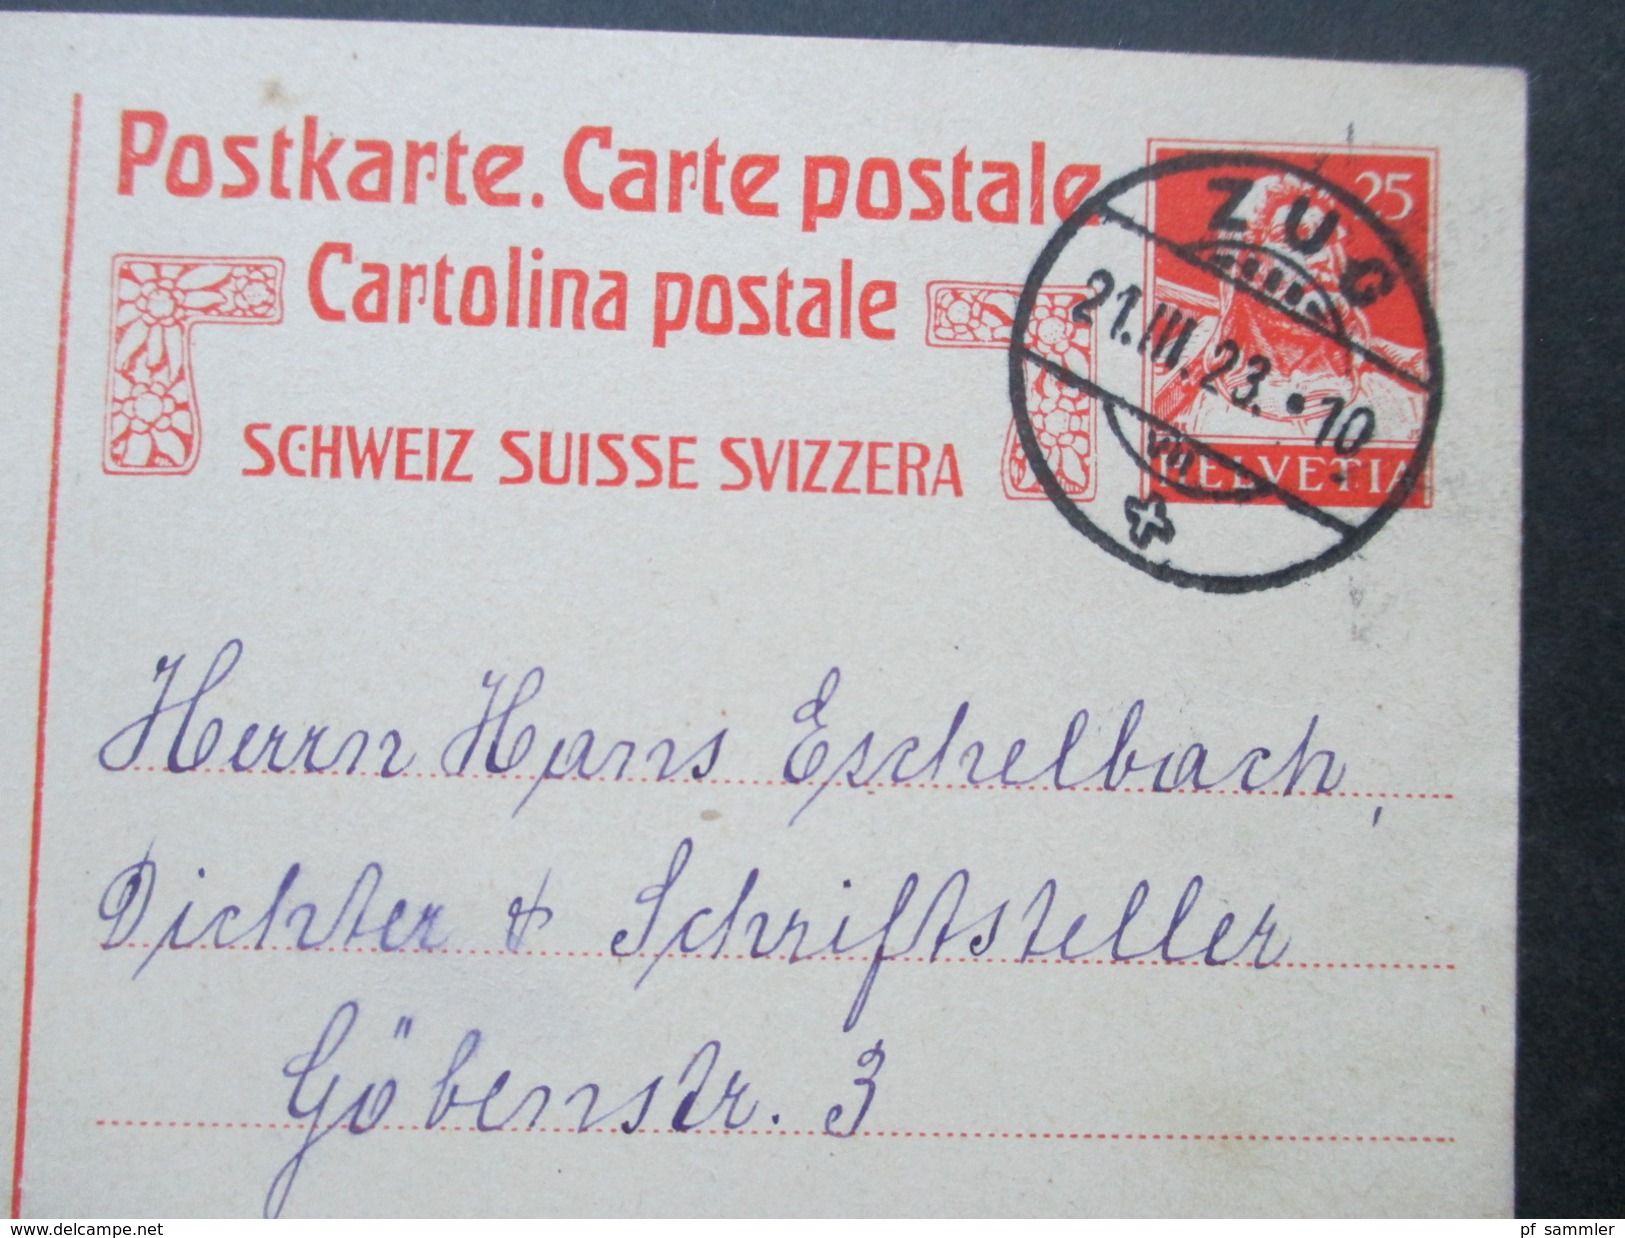 Postkarte. Carte postale.
Cartolina postale
SCHWEIZ SUISSE SVIZZERA
25
HELVETIA
ZUG
21.III.23.•10
Herrn Hans Eschelbach,
Dichter & Schriftsteller
Göbenstr. 3
www.delcampe.net
pf_sammler